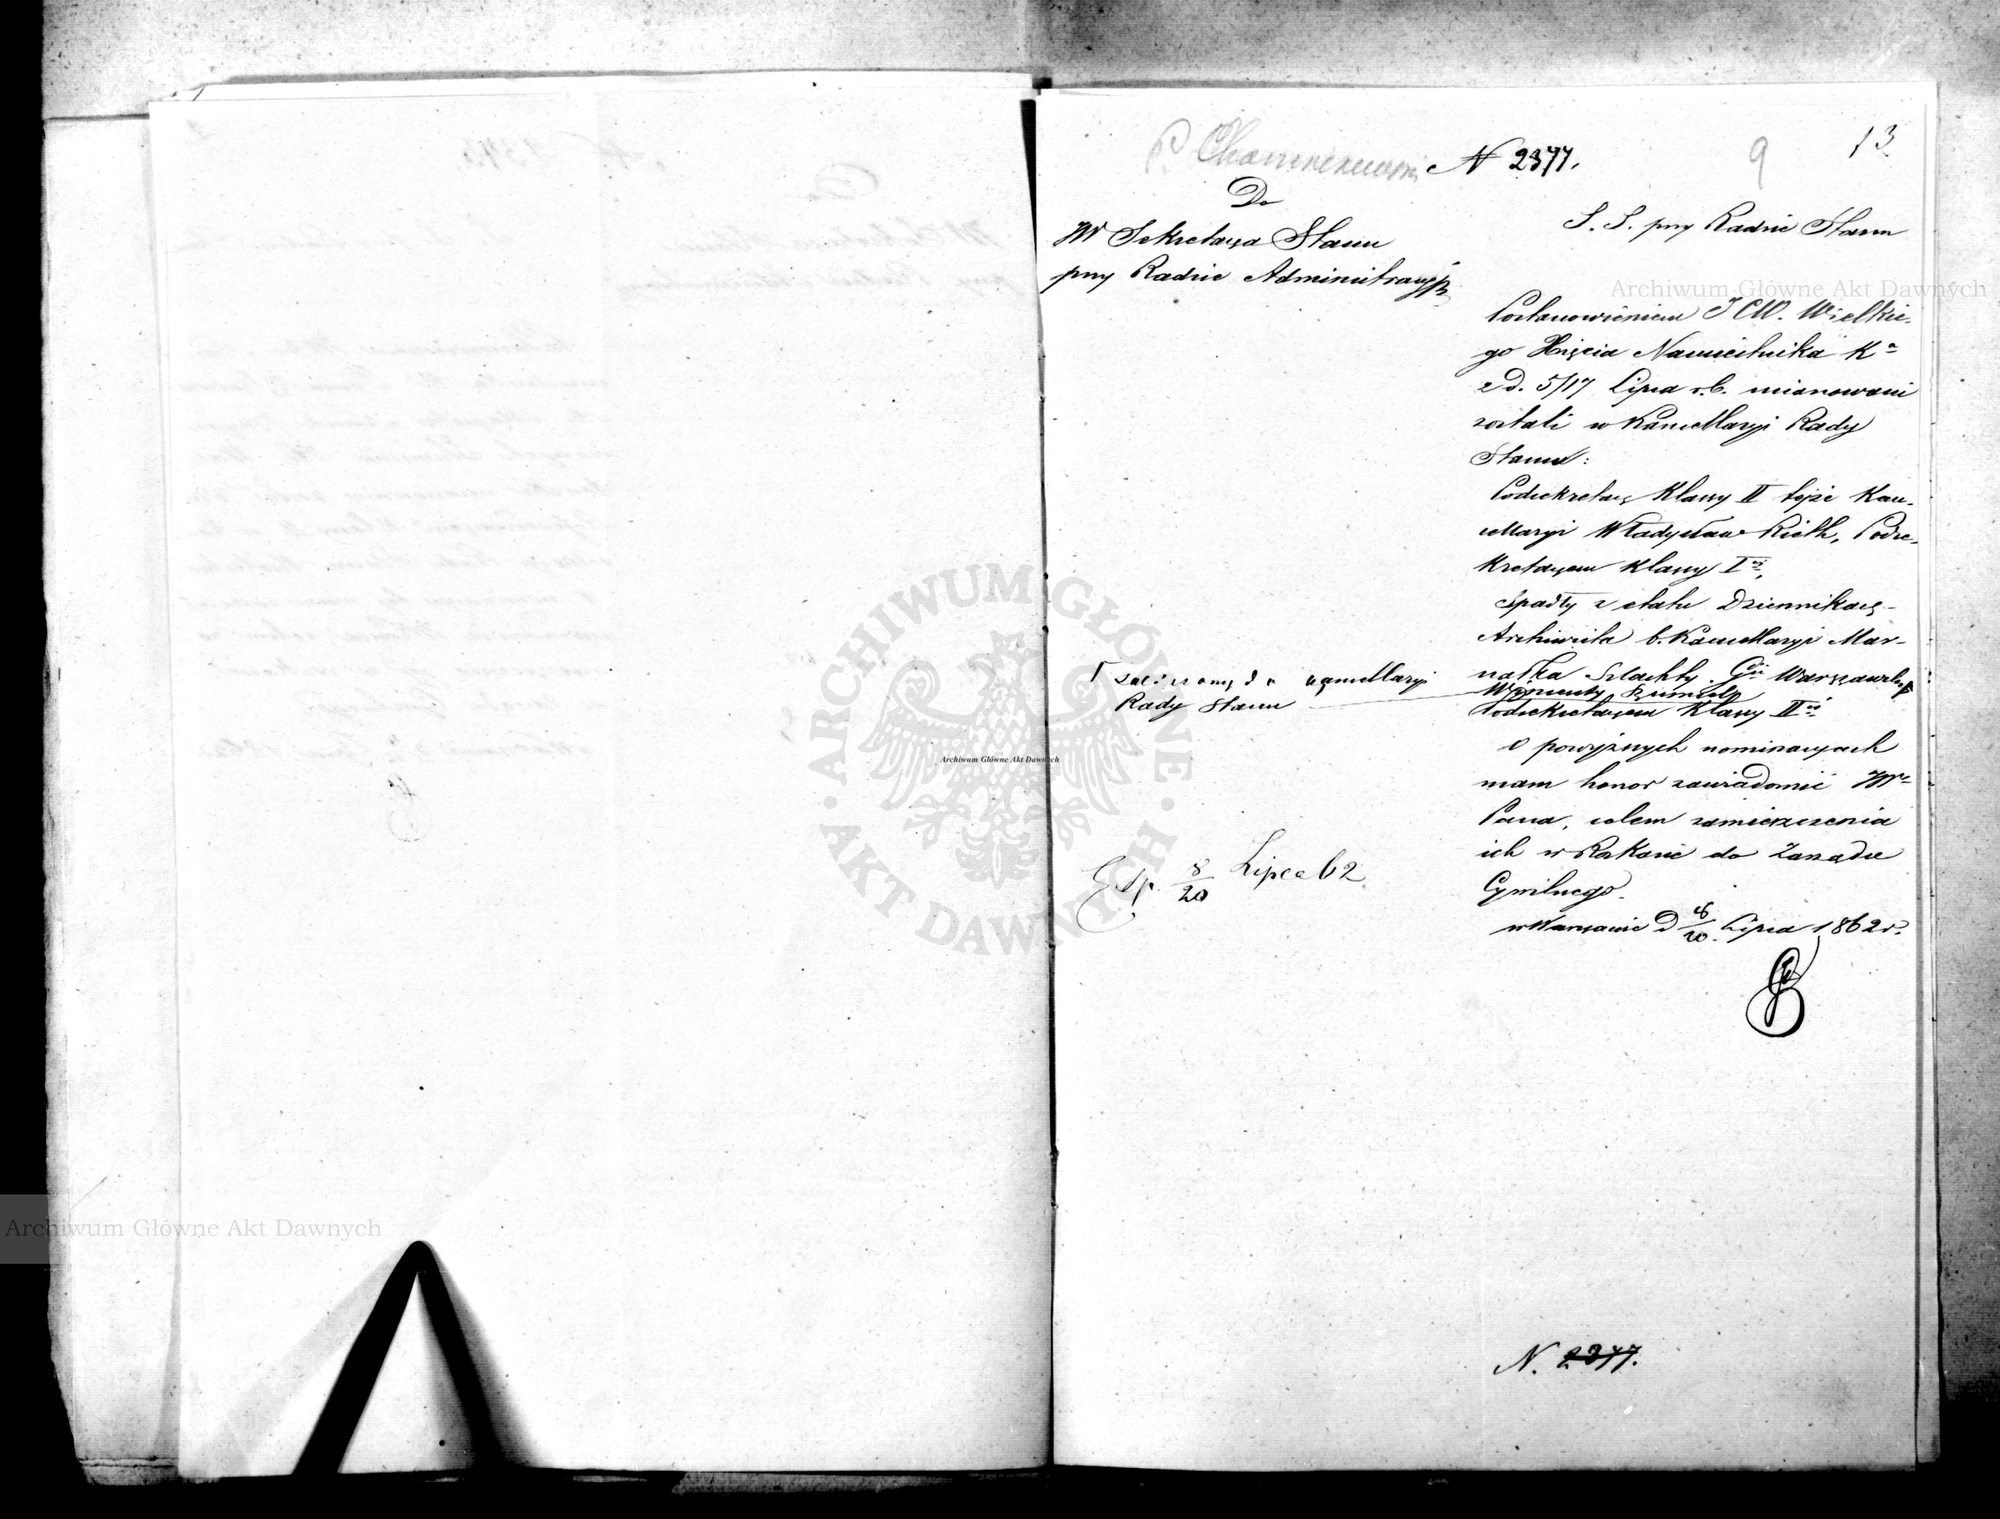 N 2377.
9
13
Do
JW Sekretarza Stanu
przy Radzie Administracyjn
S. S. przy Radzie Stanu
Postanowieniem JCW. Wielkie-
go Xięcia Namiestnika Ka
z d. 5/17 Lipca r.b. mianowani
zostali w Kancellaryi Rady
Stanu:
Podsekretarz Klassy II tejże Kan-
cellaryi Władysław Rieth, Podse-
kretarzem Klassy Iej,
Spadły z etatu Dziennikarz-
Archiwista b. Kancellaryi Mar-
szałka Szlachty Gii Warszawskiej
Wincenty
zaliczony do Kancellaryi
Rady Stanu
Podsekretarzem Klassy IIej
O powyższych nominacyach
mam honor zawiadomić JW
Pana, celem zamieszczenia
ich w Rozkazie do Zarządu
Cywilnego.
w Warszawie d 8/20 Lipca 1862 r.
Exp. 8/20 Lipca 62
N. 2377.
Archiwum Główne Akt Dawnych
Archiwum Główne Akt Dawnych
Archiwum Główne Akt Dawnych
ARCHIWUM GŁÓWNE
AKT DAWNYCH